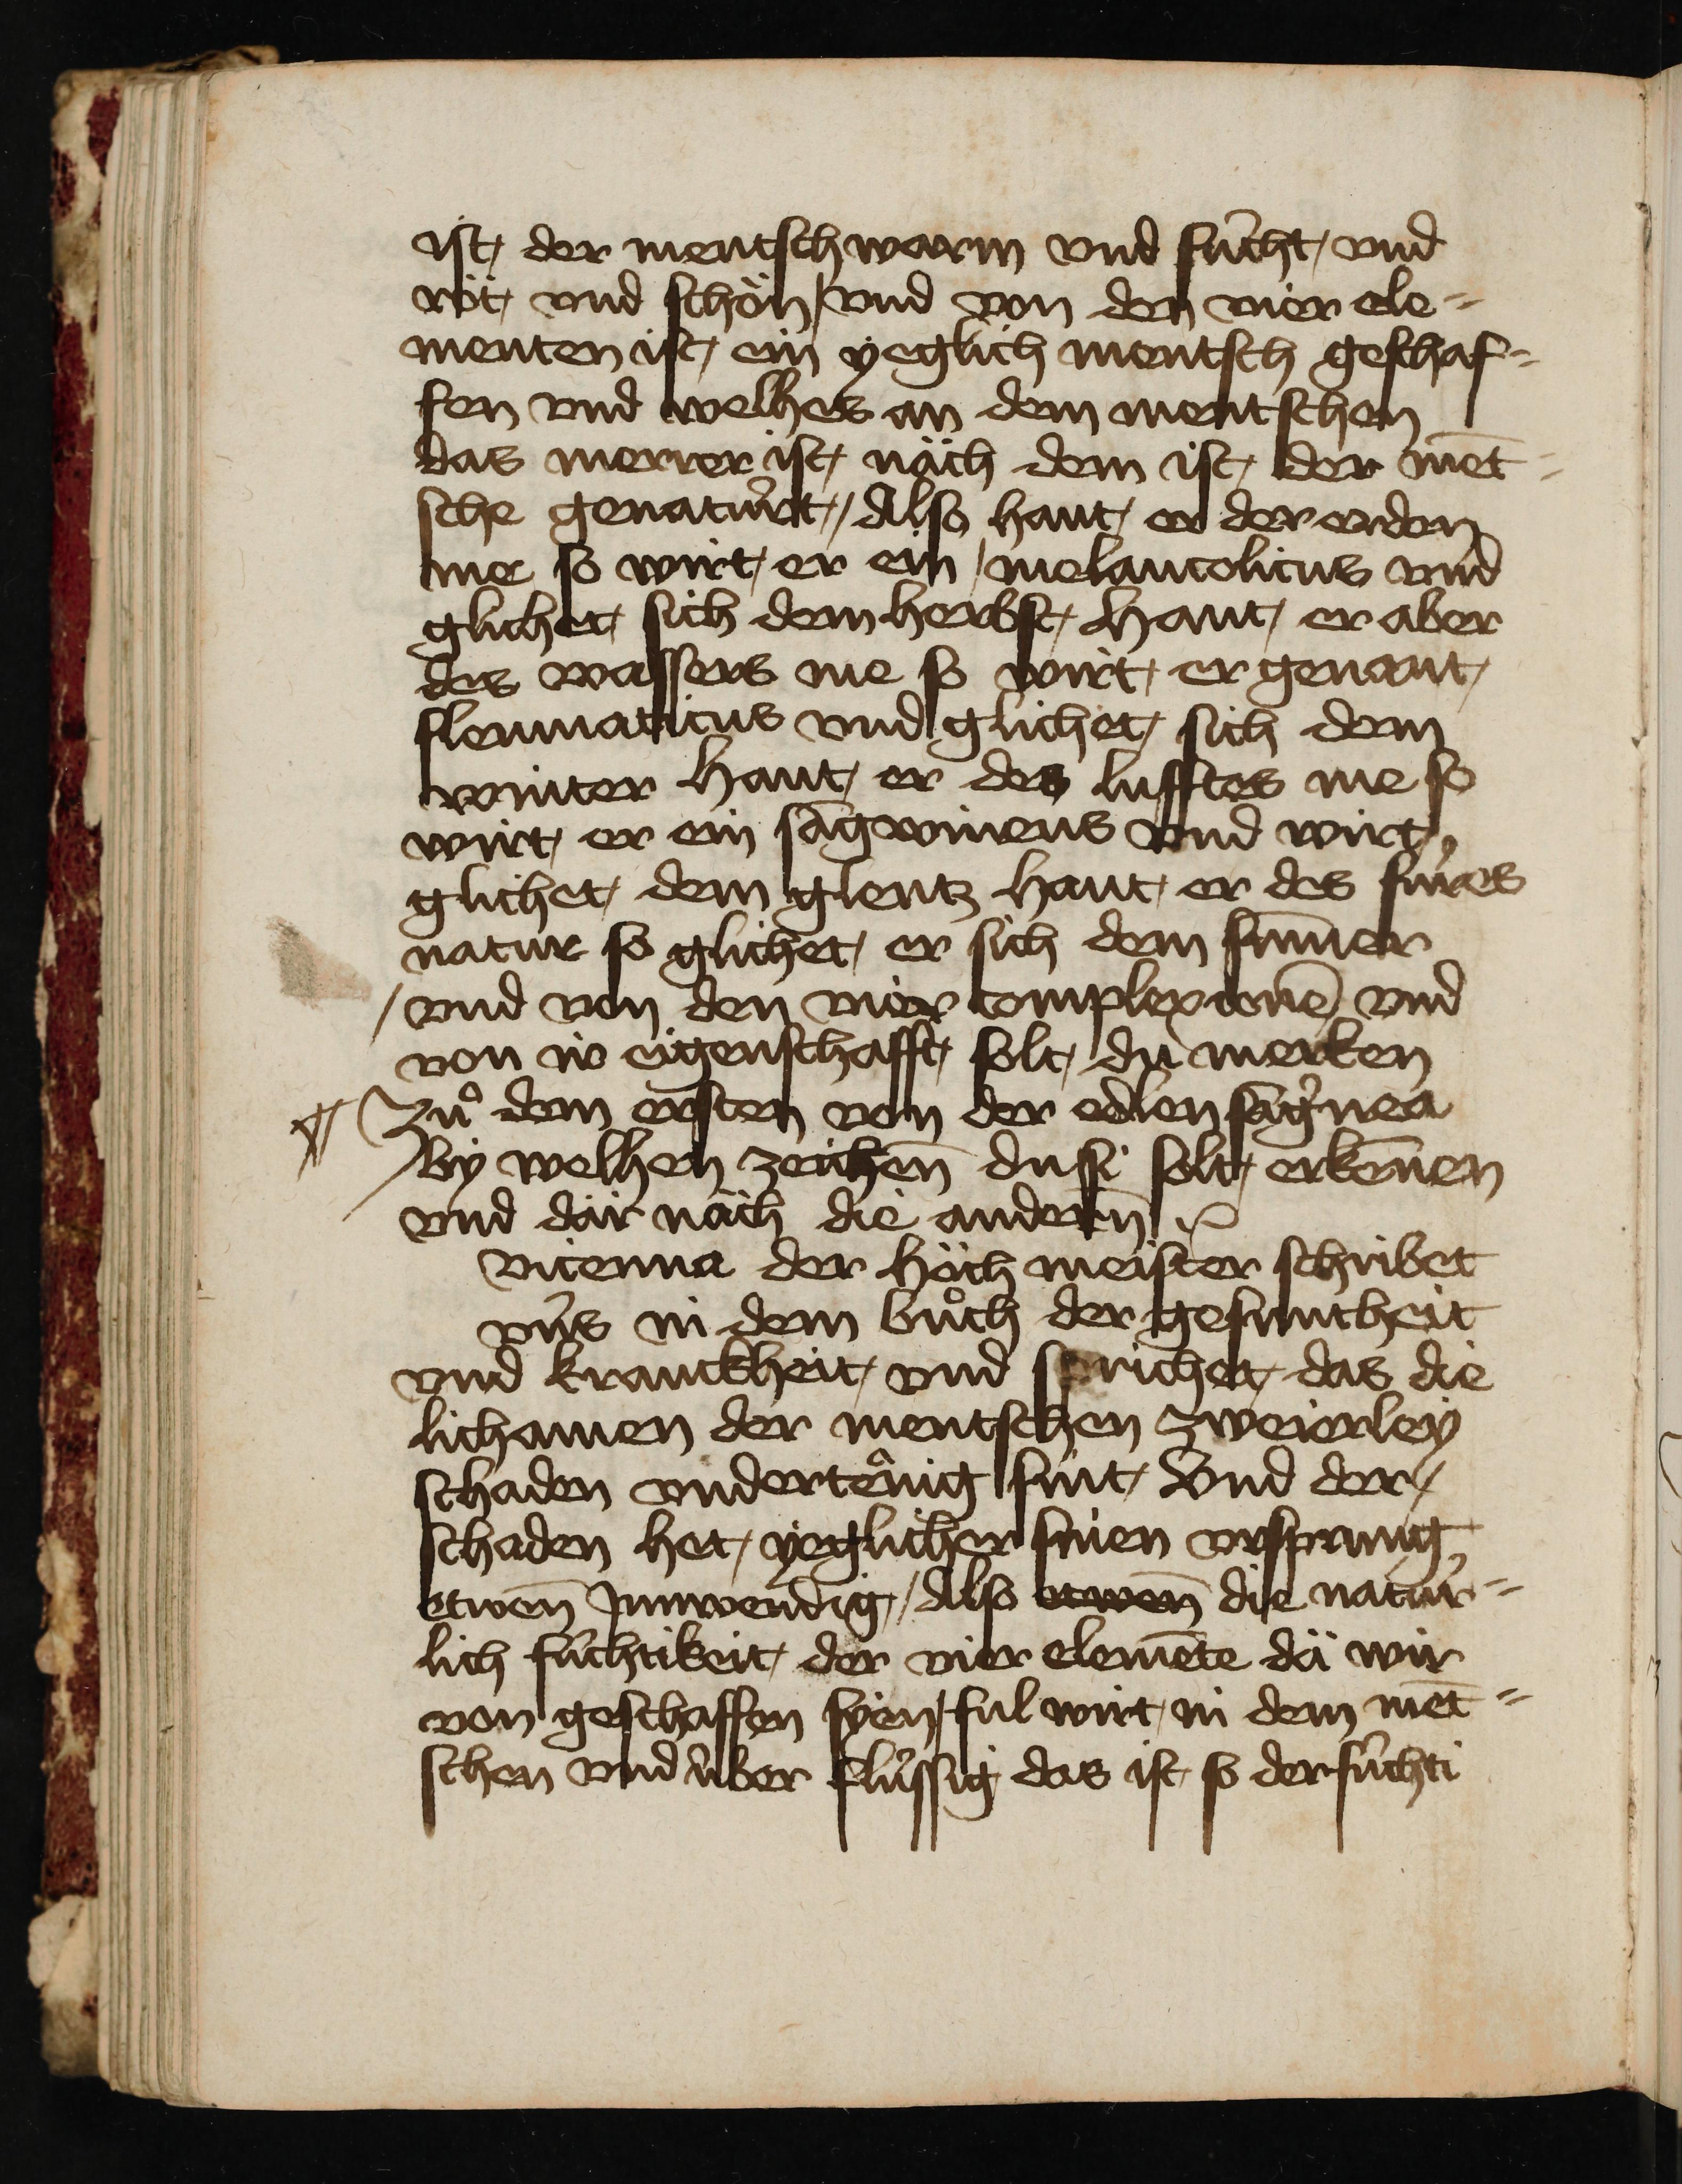 ist der mentsch warm vnd fücht / vnd
röt vnd schön / vnd von den vier ele=
menten ist ein yeglich mentsch geschaf=
fen vnd welhes an dem mentschen
das merrer ist näch dem ist der mēt=
sche genatürt // Also hant er der erden
me so wirt er ein melancolicus vnd
glichet sich dem herbst / Hant er aber
des wassers me so wirt er genant
fleumaticus vnd glichet sich dem
winter Hant er des lufftes me so
wirt er ein sāgwineus vnd wirt
glichet dem glentz Hant er des füres
natur so glichet er sich dem sum̄er
/ vnd von den vier complexionē vnd
von ir eigenschafft solt du merken
Zů dem ersten von der edlen sāg'nea
By welhen zeichen̄ du si solt erkēnen
vnd där näch die andern̄
vicenna der höch meister schribet
vns in dem bůch der gesuntheit
vnd kranckheit vnd sprichet das die
lichamen der mentschen zweierley
schaden vndertänig sint / Vnd der /
schaden het yeglicher sinen vrsprung
etwen̄ Innwendig / Also etwen̄ die natür=
lich füchtikeit der vier elemēte dä wir
von geschaffen syen / ful wirt in dem mēt=
schen vnd über flüssig das ist so der füchti